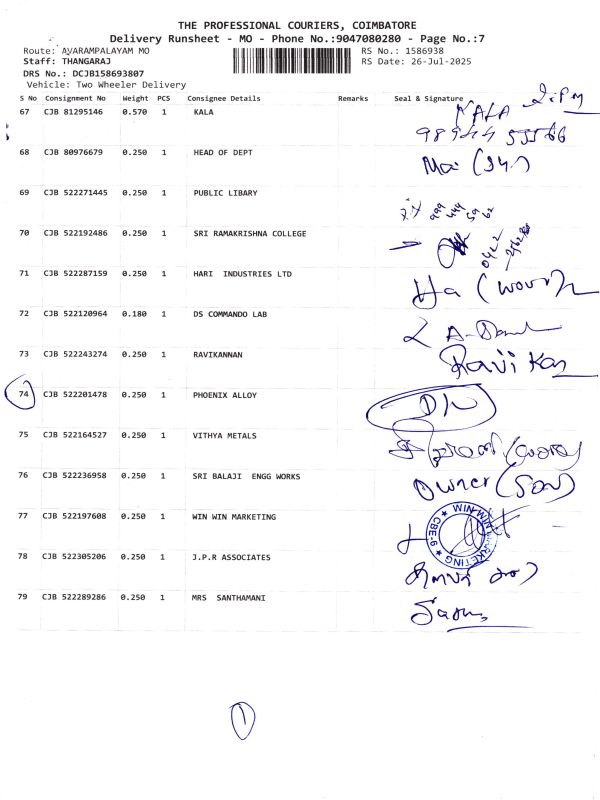 THE PROFESSIONAL COURIERS, COIMBATORE
Delivery Runsheet - MO - Phone No.:9047080280 - Page No.:7
Route: AVARAMPALAYAM MO RS No.: 1586938
Staff: THANGARAJ RS Date: 26-Jul-2025
DRS No.: DCJB158693807
Vehicle: Two Wheeler Delivery
S No Consignment No Weight PCS Consignee Details Remarks Seal & Signature
67 CJB 81295146 0.570 1 KALA KALA
98944 55566
68 CJB 80976679 0.250 1 HEAD OF DEPT
69 CJB 522271445 0.250 1 PUBLIC LIBARY
70 CJB 522192486 0.250 1 SRI RAMAKRISHNA COLLEGE
71 CJB 522287159 0.250 1 HARI INDUSTRIES LTD
72 CJB 522120964 0.180 1 DS COMMANDO LAB
73 CJB 522243274 0.250 1 RAVIKANNAN Ravi Kan
74 CJB 522201478 0.250 1 PHOENIX ALLOY
75 CJB 522164527 0.250 1 VITHYA METALS
76 CJB 522236958 0.250 1 SRI BALAJI ENGG WORKS Owner (Son)
77 CJB 522197608 0.250 1 WIN WIN MARKETING WIN WIN MARKETING ★ CBE-6 ★
78 CJB 522305206 0.250 1 J.P.R ASSOCIATES
79 CJB 522289286 0.250 1 MRS SANTHAMANI
1